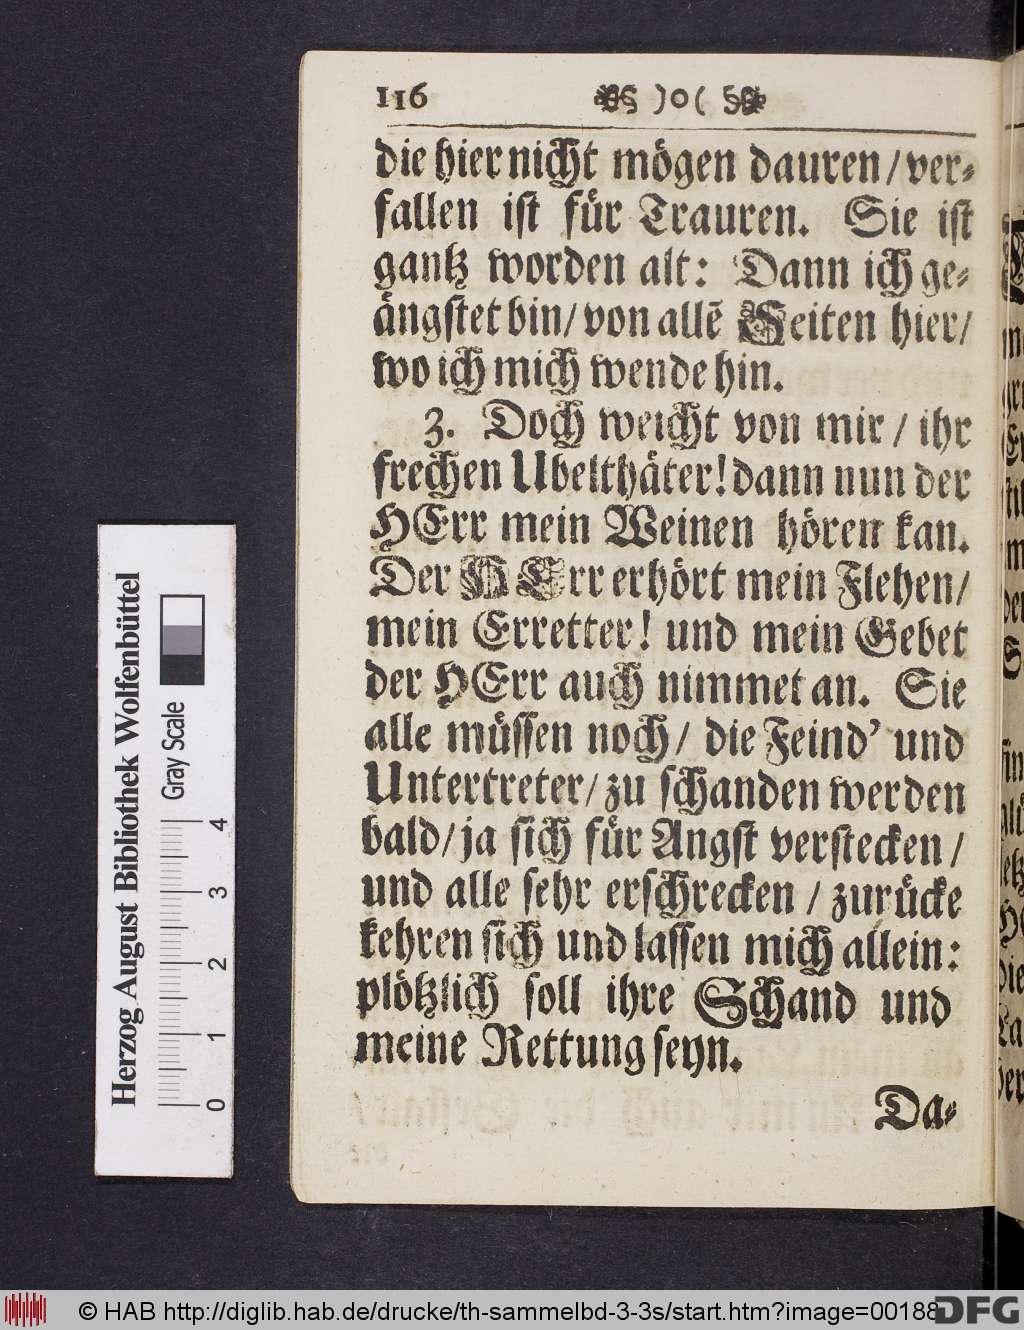 116 )o(
die hier nicht mögen dauren / ver⸗
fallen ist für Trauren. Sie ist
gantz worden alt: Dann ich ge⸗
ängstet bin / von allẽ Seiten hier /
wo ich mich wende hin.
3. Doch weicht von mir / ihr
frechen Ubelthäter! dann nun der
HErr mein Weinen hören kan.
Der HErr erhört mein Flehen /
mein Erretter! und mein Gebet
der HErr auch nimmet an. Sie
alle müssen noch / die Feind' und
Untertreter / zu schanden werden
bald / ja sich für Angst verstecken /
und alle sehr erschrecken / zurücke
kehren sich und lassen mich allein:
plötzlich soll ihre Schand und
meine Rettung seyn.
Da⸗
Herzog August Bibliothek Wolfenbüttel
Gray Scale
0 1 2 3 4
© HAB http://diglib.hab.de/drucke/th-sammelbd-3-3s/start.htm?image=00188
DFG